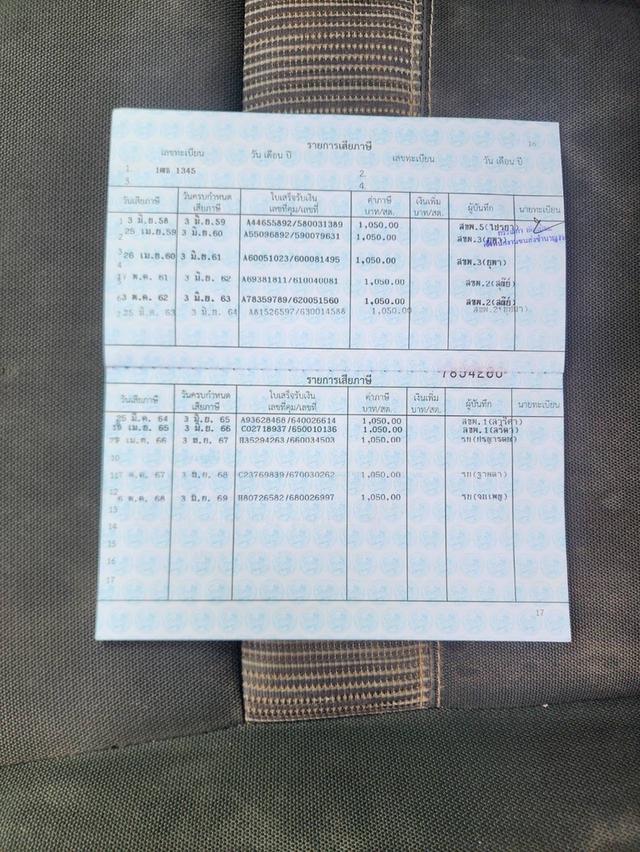 รายการเสียภาษี 16
เลขทะเบียน วัน เดือน ปี เลขทะเบียน วัน เดือน ปี
1 1ฒธ 1345 2.
3 4.
วันเสียภาษี วันครบกำหนดเสียภาษี ใบเสร็จรับเงิน เลขที่คุม/เลขที่ ค่าภาษี บาท/สต. เงินเพิ่ม บาท/สต. ผู้บันทึก นายทะเบียน
1 3 มิ.ย.58 3 มิ.ย.59 A44655892/580031389 1,050.00 สขพ.5
2 25 เม.ย.59 3 มิ.ย.60 A55096892/590079631 1,050.00 สขพ.3
3 26 เม.ย.60 3 มิ.ย.61 A60051023/600081495 1,050.00 สขพ.3(ยุพา)
พ.ค. 61 3 มิ.ย. 62 A69381811/610040081 1,050.00 สขพ.5
3 พ.ค. 62 3 มิ.ย. 63 A78359789/620051560 1,050.00 สขพ.2
25 มี.ค. 63 3 มิ.ย. 64 A81526597/630014588 1,050.00 สขพ.2
รายการเสียภาษี
วันเสียภาษี วันครบกำหนดเสียภาษี ใบเสร็จรับเงิน เลขที่คุม/เลขที่ ค่าภาษี บาท/สต. เงินเพิ่ม บาท/สต. ผู้บันทึก นายทะเบียน
25 มี.ค. 64 3 มิ.ย. 65 A93628468/640026614 1,050.00 สขพ.1
3 มิ.ย. 66 C02718937/650010136 1,050.00 สขพ.1
เม.ย. 66 3 มิ.ย. 67 35294263/660034503 1,050.00 รย
10
พ.ค. 67 3 มิ.ย. 68 C23769839/670030262 1,050.00 รย
12 6 พ.ค. 68 3 มิ.ย. 69 80726582/680026997 1,050.00 รย
13
14
15
16
17
17